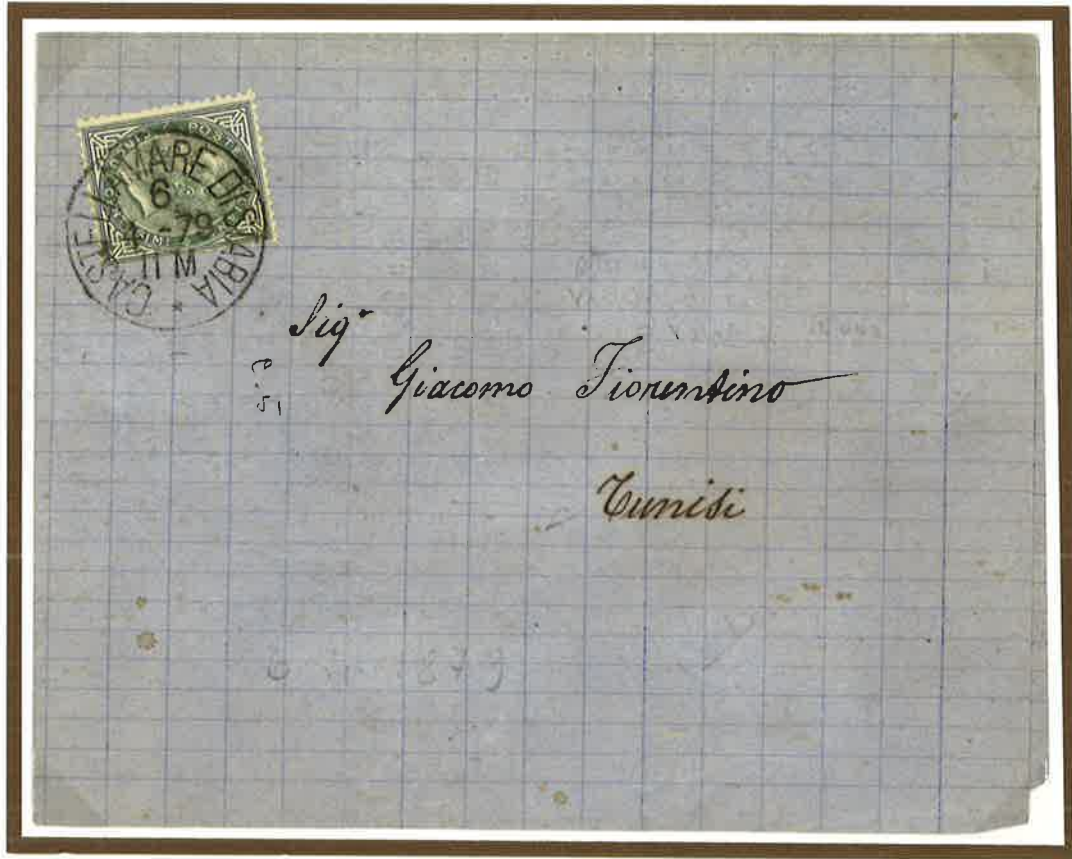 POSTE
CASTELLAMARE DI STABIA *
6
4 -79
11 M
Sigr
Giacomo Fiorentino
Tunisi